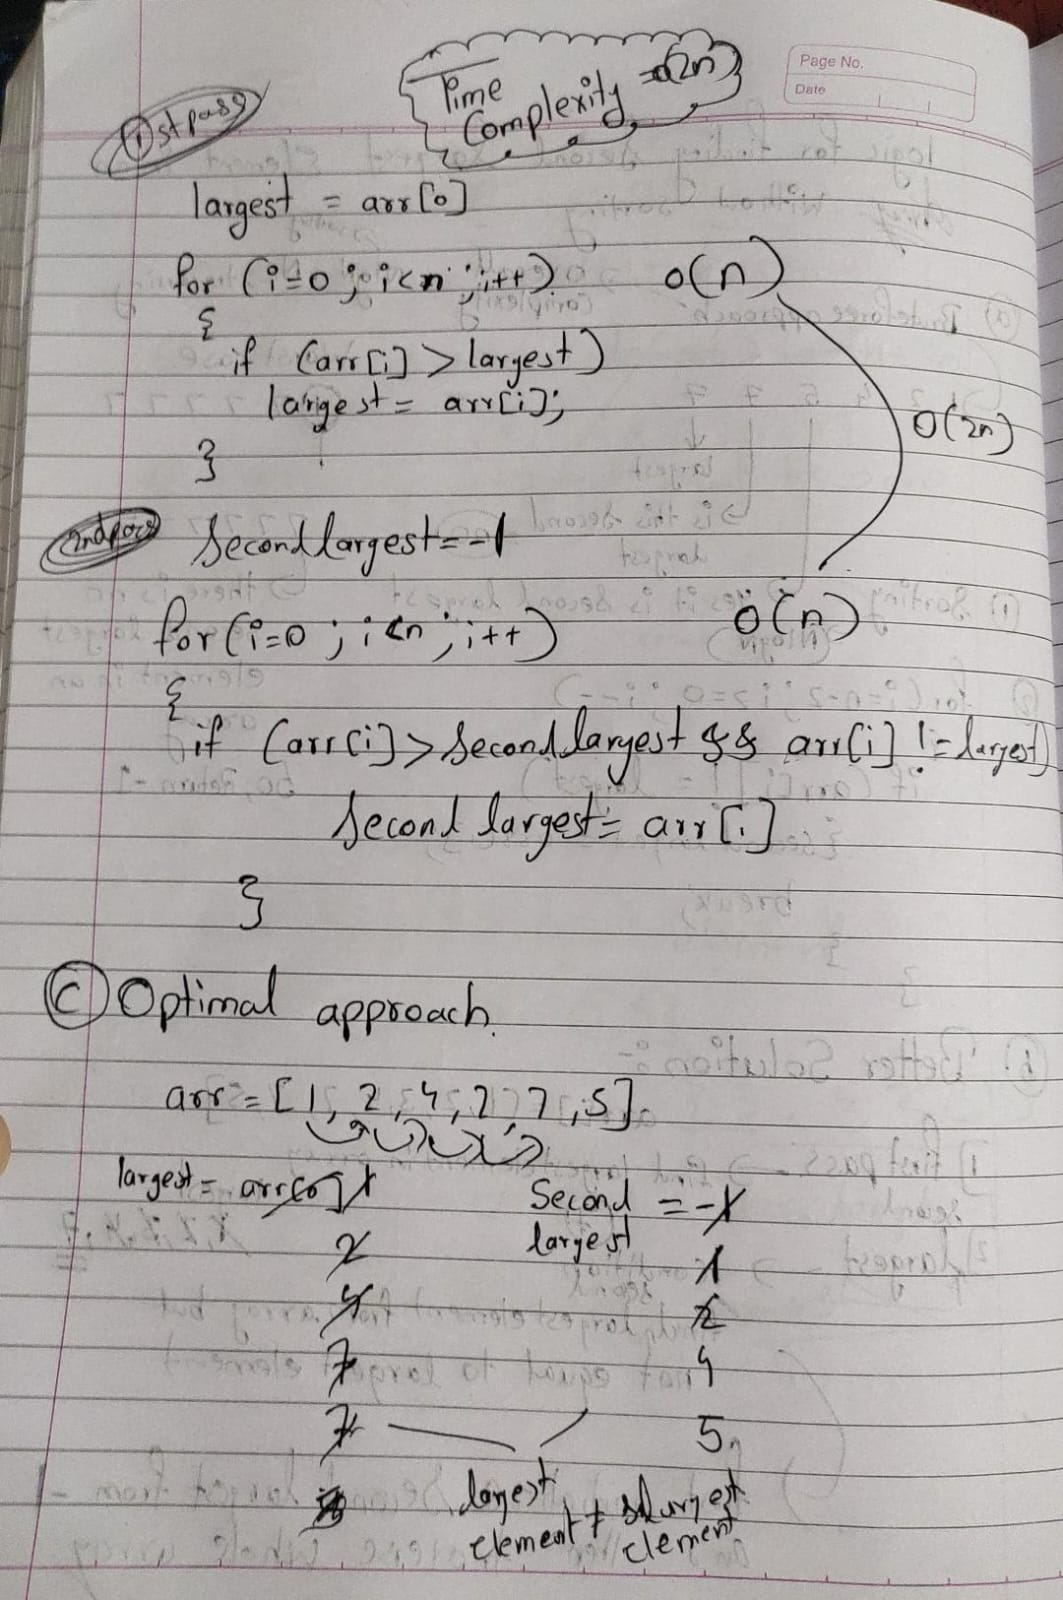 Page No.
Date
Time
Complexity = O(2n)
1st pass
largest = arr[0]
for (i=0 ; i<n ; i++) O(n)
{
if (arr[i] > largest)
largest = arr[i];
}
O(2n)
2nd pass
Second largest = -1
for (i=0 ; i<n ; i++) O(n)
{
if (arr[i] > Second largest && arr[i] != largest)
Second largest = arr[i]
}
C Optimal approach.
arr = [1, 2, 4, 7, 7, 5]
largest = arr[0] 1
Second = -1
largest
2
1
4
2
7
4
7
5
largest
element ≠ slargest
element